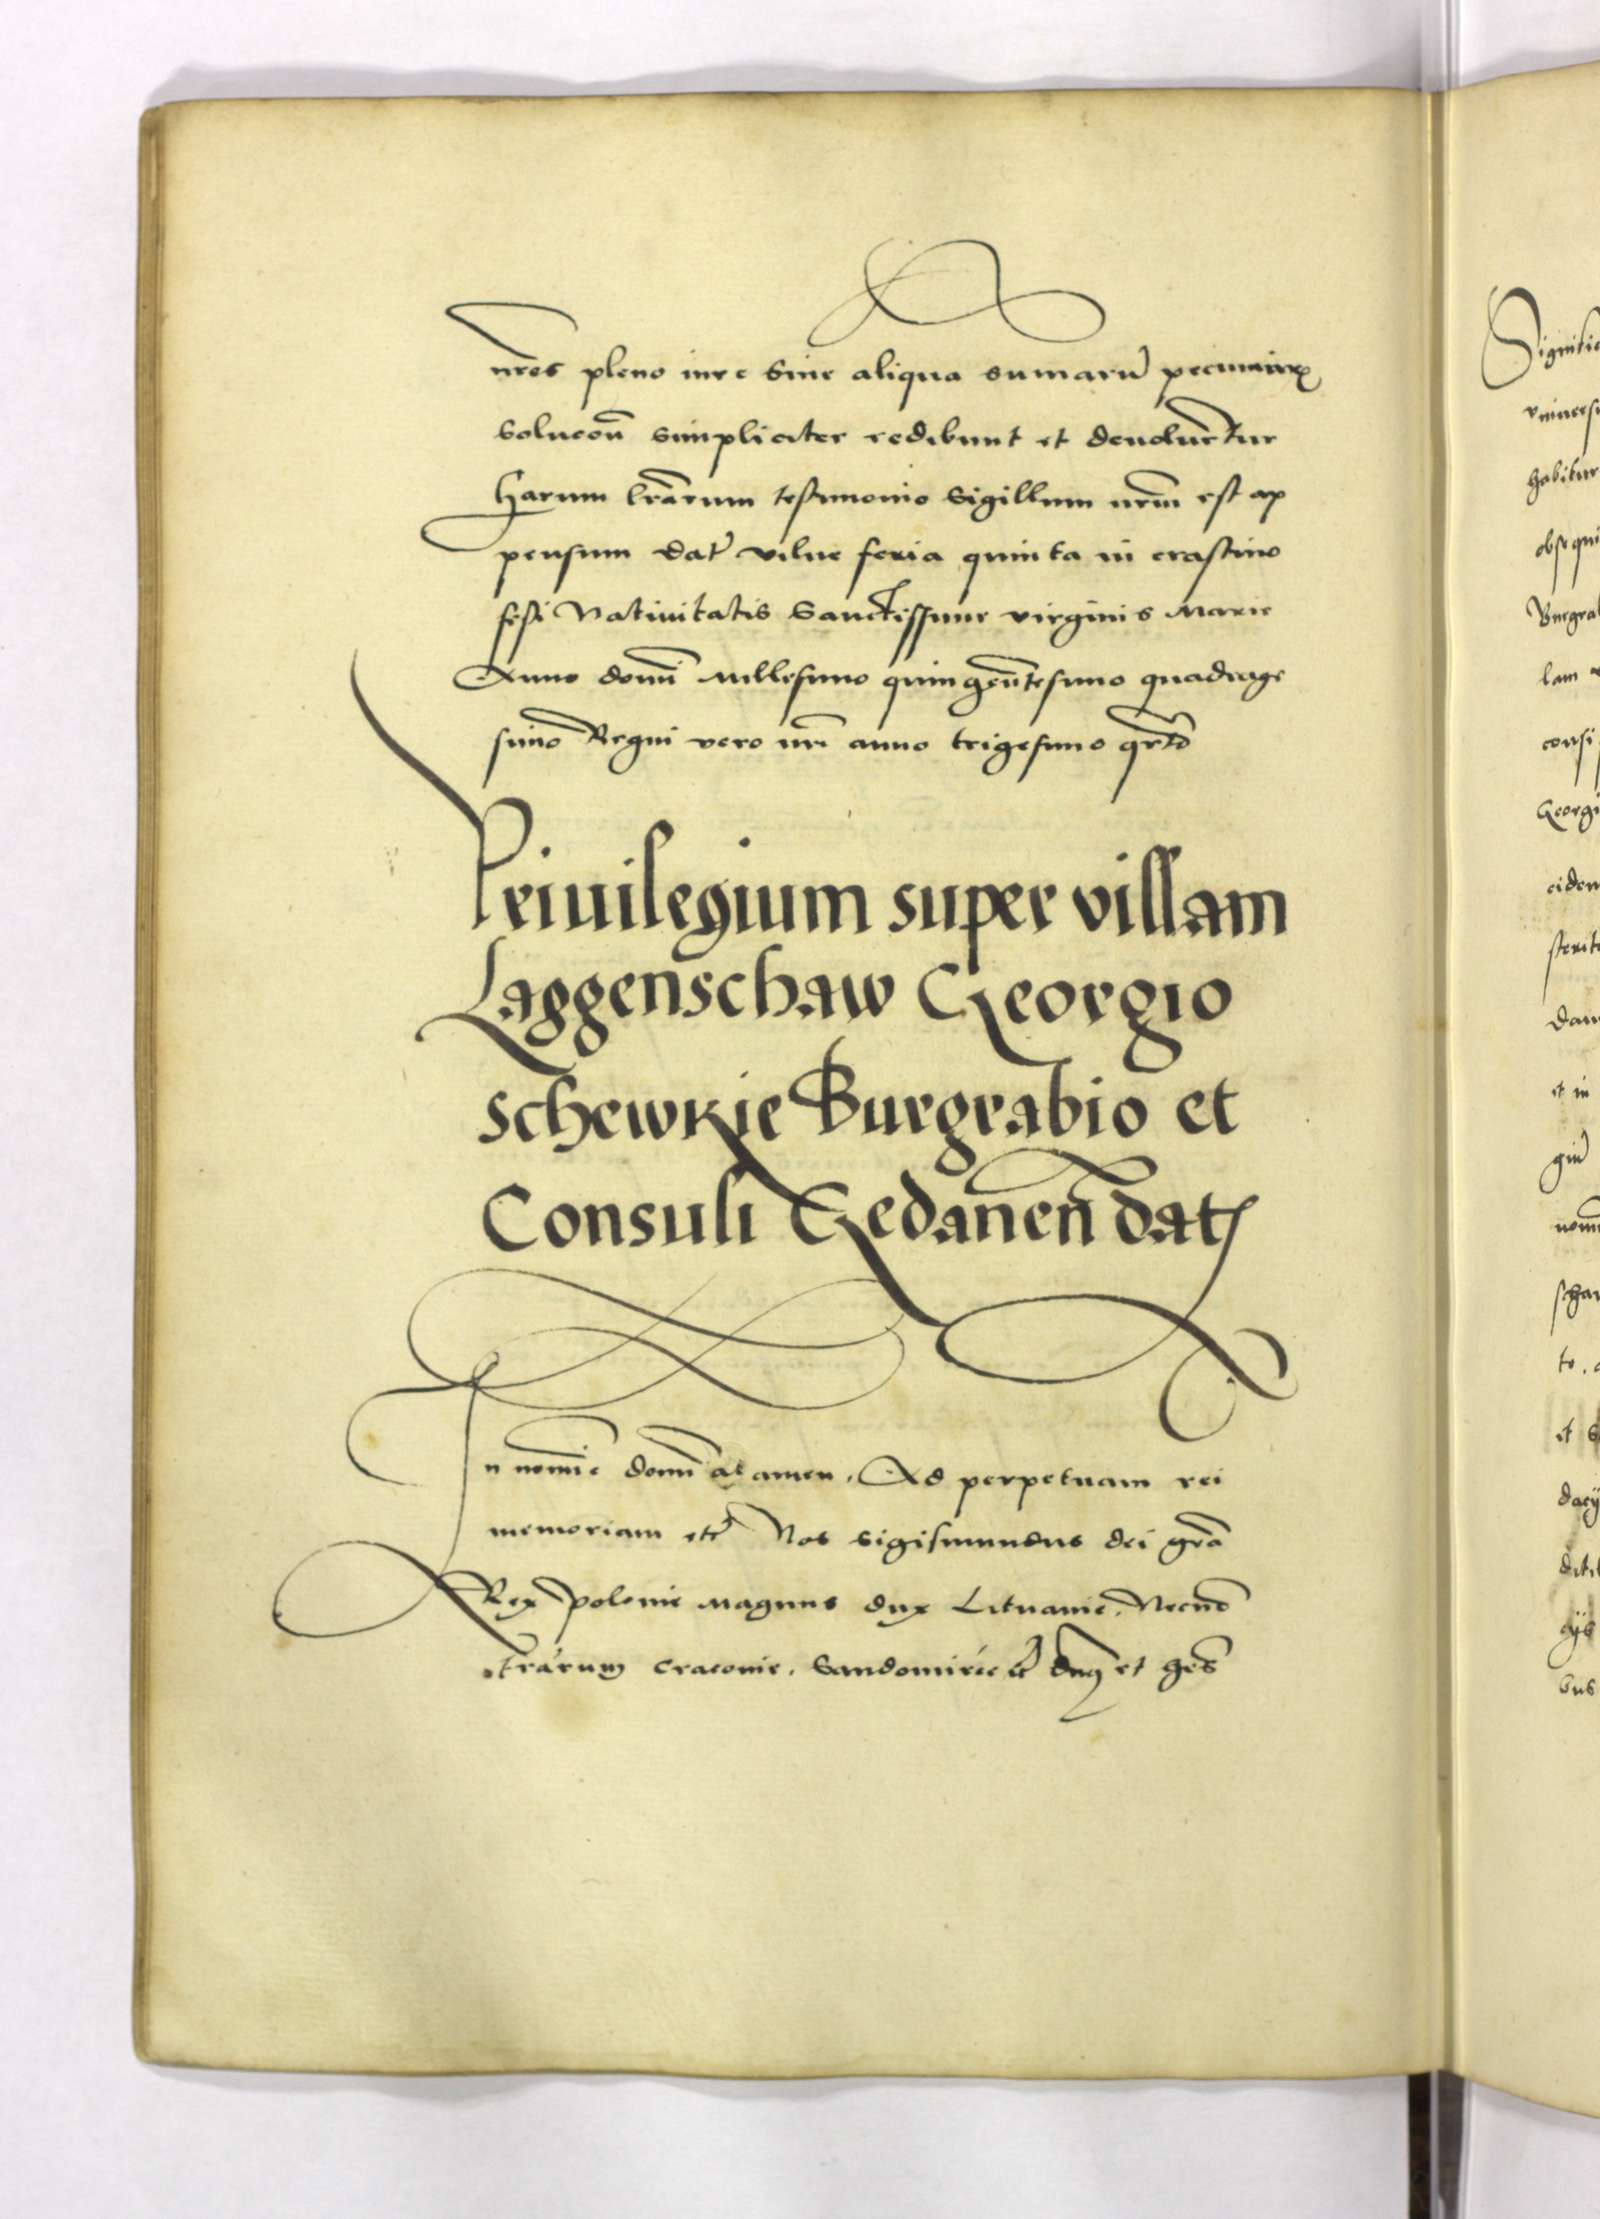 nr̄os pleno iure sine aliqua sumarū pecuniarꝝ
solucōn simpliciter redibunt et deuoluētur
Harum lrārum testimonio sigillum nrm̄ est ap
pensum dat̄ vilne feria quinta in crastino
festi Natiuitatis Sanctissime virginis Marie
Anno domī Millesimo quingen̄tesimo quadrage
simo Regni vero nrī anno trigesimo qr̄to
Priuilegium super villam
Laggenschaw Georgio
schewkie Burgrabio et
Consuli Gedanen̄ dat
In nomīe domī amen. Ad perpetuam rei
memoriam etc̄ Nos sigismundus dei grā
Rex polonie Magnus dux Lituanie. Necnō
trārum cracouie. Sandomirie et
Signific
vniuers
habitur
obsequi
Burgra
lam
consi
Georgi
eiden
sterit
dam
et in
giū
nomī
schaw
to.
et
dacy
bus